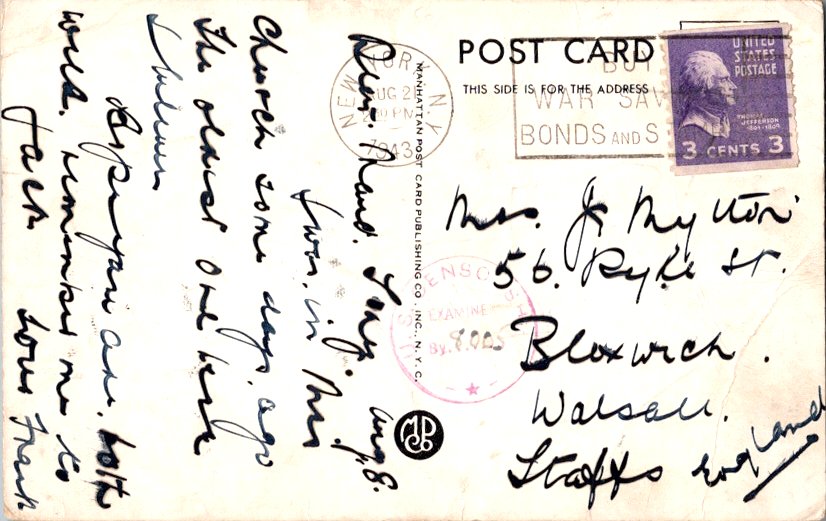 POST CARD
THIS SIDE IS FOR THE ADDRESS
UNITED
STATES
POSTAGE
THOMAS
JEFFERSON
1801-1809
3 CENTS 3
NEW YORK, N.Y.
AUG 2
PM
1943
BUY
WAR SAV
BONDS AND S
Dear. Maud. Aug 8.
I was in this
Church some days ago
The oldest one here
I believe
Hope you are. both
well. remember me to
Jack Love Frank
MANHATTAN POST CARD PUBLISHING CO., INC., N.Y.C.
Mrs. J. Mytton
56. Ryle St.
Bloxwich.
Walsall.
Staffs England
CENSO
EXAMINE
By 8005